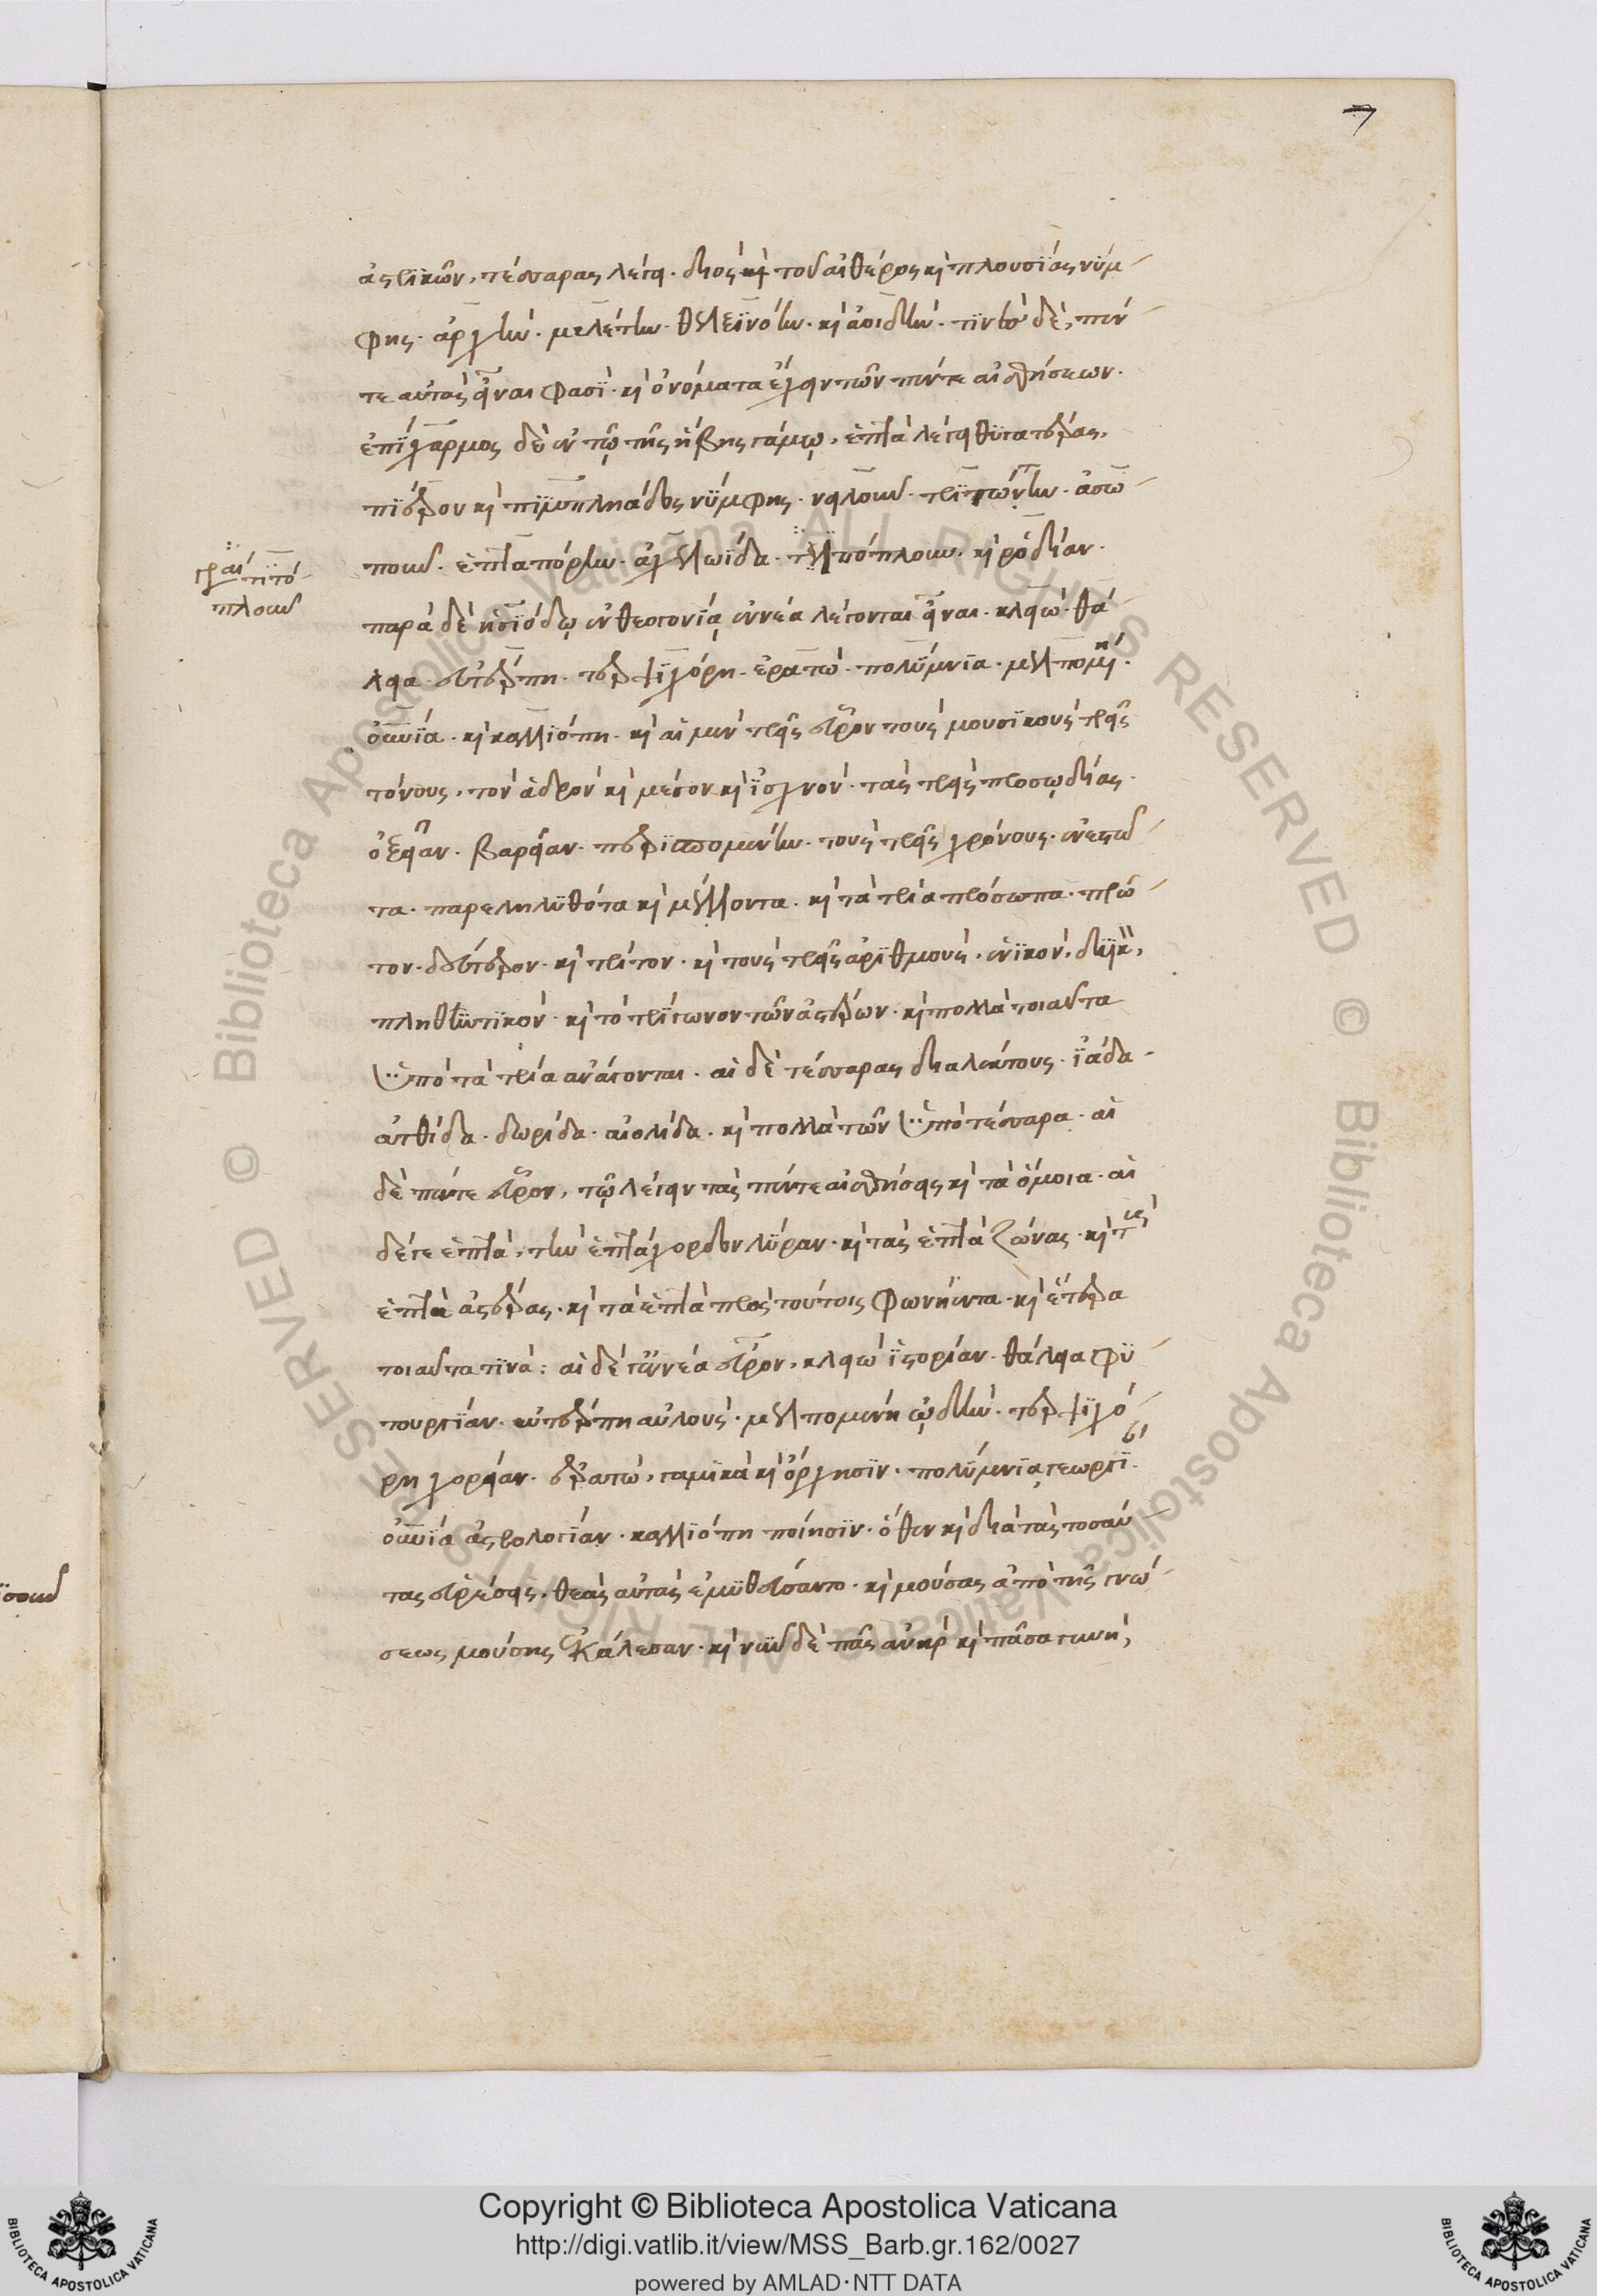 7
ἀστρικῶν, τέσσαρας λέγει· διὸς καὶ τοῦ αἰθέρος καὶ πλουσίας νύμ-
φης· ἀρχὴν· μελέτην· θελξινόην· καὶ ἀοιδὴν· τινὲς δὲ, πέν-
τε αὐτὰς εἶναι φασὶ· καὶ ὀνόματα ἔχειν τῶν πέντε αἰσθήσεων·
ἐπίχαρμος δὲ ἐν τῷ τῆς ἥβης γάμῳ, ἑπτὰ λέγει θυγατέρας,
πιέρου καὶ πιμπληάδος νύμφης· νειλοῦν· τριτώνην· ἀσω-
ποῦν· ἑπταπόρην· ἀχελωίδα· καὶ ῥόδιαν·
τιτό-
πλουν
παρὰ δὲ ἡσιόδῳ ἐν θεογονίᾳ ἐννέα λέγονται εἶναι· κλειώ· θά-
λεια· εὐτέρπη· τερψιχόρη· ἐρατώ· πολύμνια· μελπομένη·
οὐρανία· καὶ καλλιόπη· καὶ αἱ μὲν τρεῖς εὗρον τοὺς μουσικοὺς τρεῖς
τόνους, τὸν ἁδρὸν καὶ μέσον καὶ ἰσχνόν· τὰς τρεῖς προσῳδίας·
ὀξεῖαν· βαρεῖαν· περισπομένην· τοὺς τρεῖς χρόνους· ἐνεστῶ-
τα· παρεληλυθότα καὶ μέλλοντα· καὶ τὰ τρία πρόσωπα· πρῶ-
τον· δεύτερον· καὶ τρίτον· καὶ τοὺς τρεῖς ἀριθμοὺς· ἑνικὸν, δυϊκὸν,
πληθυντικὸν· καὶ τὸ τρίγωνον τῶν ἀστέρων· καὶ πολλὰ τοιαῦτα
ὑπὸ τὰ τρία ἀνάγονται· αἱ δὲ τέσσαρας διαλέκτους· ἰάδα-
ἀτθίδα· δωρίδα· αἰολίδα· καὶ πολλὰ τῶν ὑπὸ τέσσαρα· αἱ
δὲ πέντε εὗρον, τῷ λέγειν τὰς πέντε αἰσθήσεις καὶ τὰ ὅμοια· αἱ
δέ γε ἑπτὰ, τὴν ἑπτάχορδον λύραν· καὶ τὰς ἑπτὰ ζώνας· καὶ τοὺς
ἑπτὰ ἀστέρας· καὶ τὰ ἑπτὰ πρὸς τούτοις φωνήεντα· καὶ ἕτερα
τοιαῦτα τινὰ: αἱ δέ γ' ἐννέα εὗρον, κλειὼ ἱστορίαν· θάλεια φυ-
τουργίαν· εὐτέρπη αὐλοὺς· μελπομένη ᾠδὴν· τερψιχό-
ρη χορείαν· ἐρατὼ, γαμικὰ καὶ ὄρχησιν· πολύμνια γεωργί·
οὐρανία ἀστρολογίαν· καλλιόπη ποίησιν· ὅθεν καὶ διὰ τὰς τοσαύ-
τας εὑρέσεις, θεὰς αὐτὰς ἐμυθεύσαντο· καὶ μούσας ἀπὸ τῆς γνώ-
σεως μούσης ἐκάλεσαν· καὶ νῦν δὲ πᾶς ἀνὴρ καὶ πᾶσα γυνὴ,
Copyright © Biblioteca Apostolica Vaticana
http://digi.vatlib.it/view/MSS_Barb.gr.162/0027
powered by AMLAD·NTT DATA